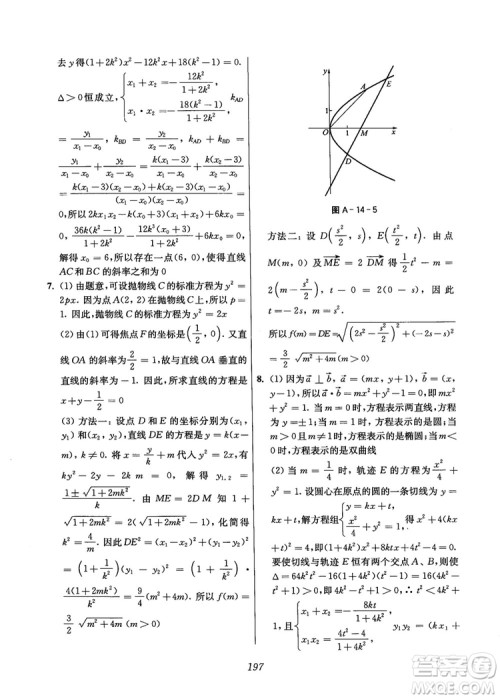 去得(1+2k²)x²-12k²x+18(k²-1)=0.
Δ>0恒成立,{x₁+x₂=-12k²/(1+2k²) x₁·x₂=-18(k²-1)/(1+2k²), k_AD
=y₁/(x₁-x₀), k_BD=y₁/(x₁-x₀)=k(x₁-3)/(x₁-x₀), k_BD=
k(x₂-3)/(x₂-x₀),所以k_AD+k_BD=k(x₁-3)/(x₁-x₀)+
k(x₂-3)/(x₂-x₀)=
0,所以2kx₁x₂-k(x₀+3)(x₁+x₂)+6kx₀=
0,36k(k²-1)/(1+2k²)-12k³(x₀+3)/(1+2k²)+6kx₀=0,
解得x₀=6,所以存在一点(6,0),使得直线
AC和BC的斜率之和为0.
7. (1)由题意,可设抛物线的标准方程为y²=
2px.因为点A(2,2)在抛物线上,所以p=
1.因此,抛物线的标准方程为y²=2x
(2)由(1)可得焦点F的坐标是(1/2,0),又直
线OA的斜率为2/2=1,故与直线OA垂直的
直线的斜率为-1.因此,所求直线的方程是
x+y-1/2=0
(3)方法一:设点D和E的坐标分别为(x₁,
y₁)和(x₂,y₂),直线DE的方程是y=k(x-m),
k≠0.将x=y/k+m代入y²=2x,有
ky²-2y-2km=0,解得y₁,₂=
(1±√(1+2mk²))/k.由ME=2DM知1+
√(1+2mk²)=2(√(1+2mk²)-1),化简得
k²=4/m.因此DE²=(x₁-x₂)²+(y₁-y₂)²
=(1+1/k²)(y₁-y₂)²=(1+1/k²)×
4(1+2mk²)/k²=9/4(m²+4m),所以f(m)=
3/2√(m²+4m)(m>0)
y
E
A
1
0
1
M
x
D
图A-14-5
方法二:设D(s²/2,s),E(t²/2,t),由点
M(m,0)及ME=2DM得1/2t²-m=
2(m-s²/2),t-0=2(0-s).因此
t=-2s,m=s².
所以f(m)=DE=√((2s²-s²/2)²+(-2s-s)²)
=3/2√(m²+4m)(m>0)
8. (1)因为a⊥b,a=(mx,y+1),b=(x,y-
1),所以a·b=mx²+y²-1=0,即mx²
+y²=1.当m=0时,方程表示两直线,方程
为y=±1;当m=1时,方程表示的是圆;当m>
0且m≠1时,方程表示的是椭圆;当m<0
时,方程表示的是双曲线
(2)当m=1/4时,轨迹E的方程为x²/4+y²
=1.设圆心在原点的圆的一条切线为y=
kx+t,解方程组{y=kx+t x²/4+y²=1得x²+4(kx+t)²
=4,即(1+4k²)x²+8ktx+4t²-4=0.
要使切线与轨迹E恒有两个交点A,B,则使
Δ=64k²t²-16(1+4k²)(t²-1)=16(4k²-t²+1)>0,即4k²-t²+1>0,即t²<4k²+
1,且{x₁+x₂=-8kt/(1+4k²) x₁x₂=(4t²-4)/(1+4k²) y₁y₂=(kx₁+
197
答案圈
MXQE.COM